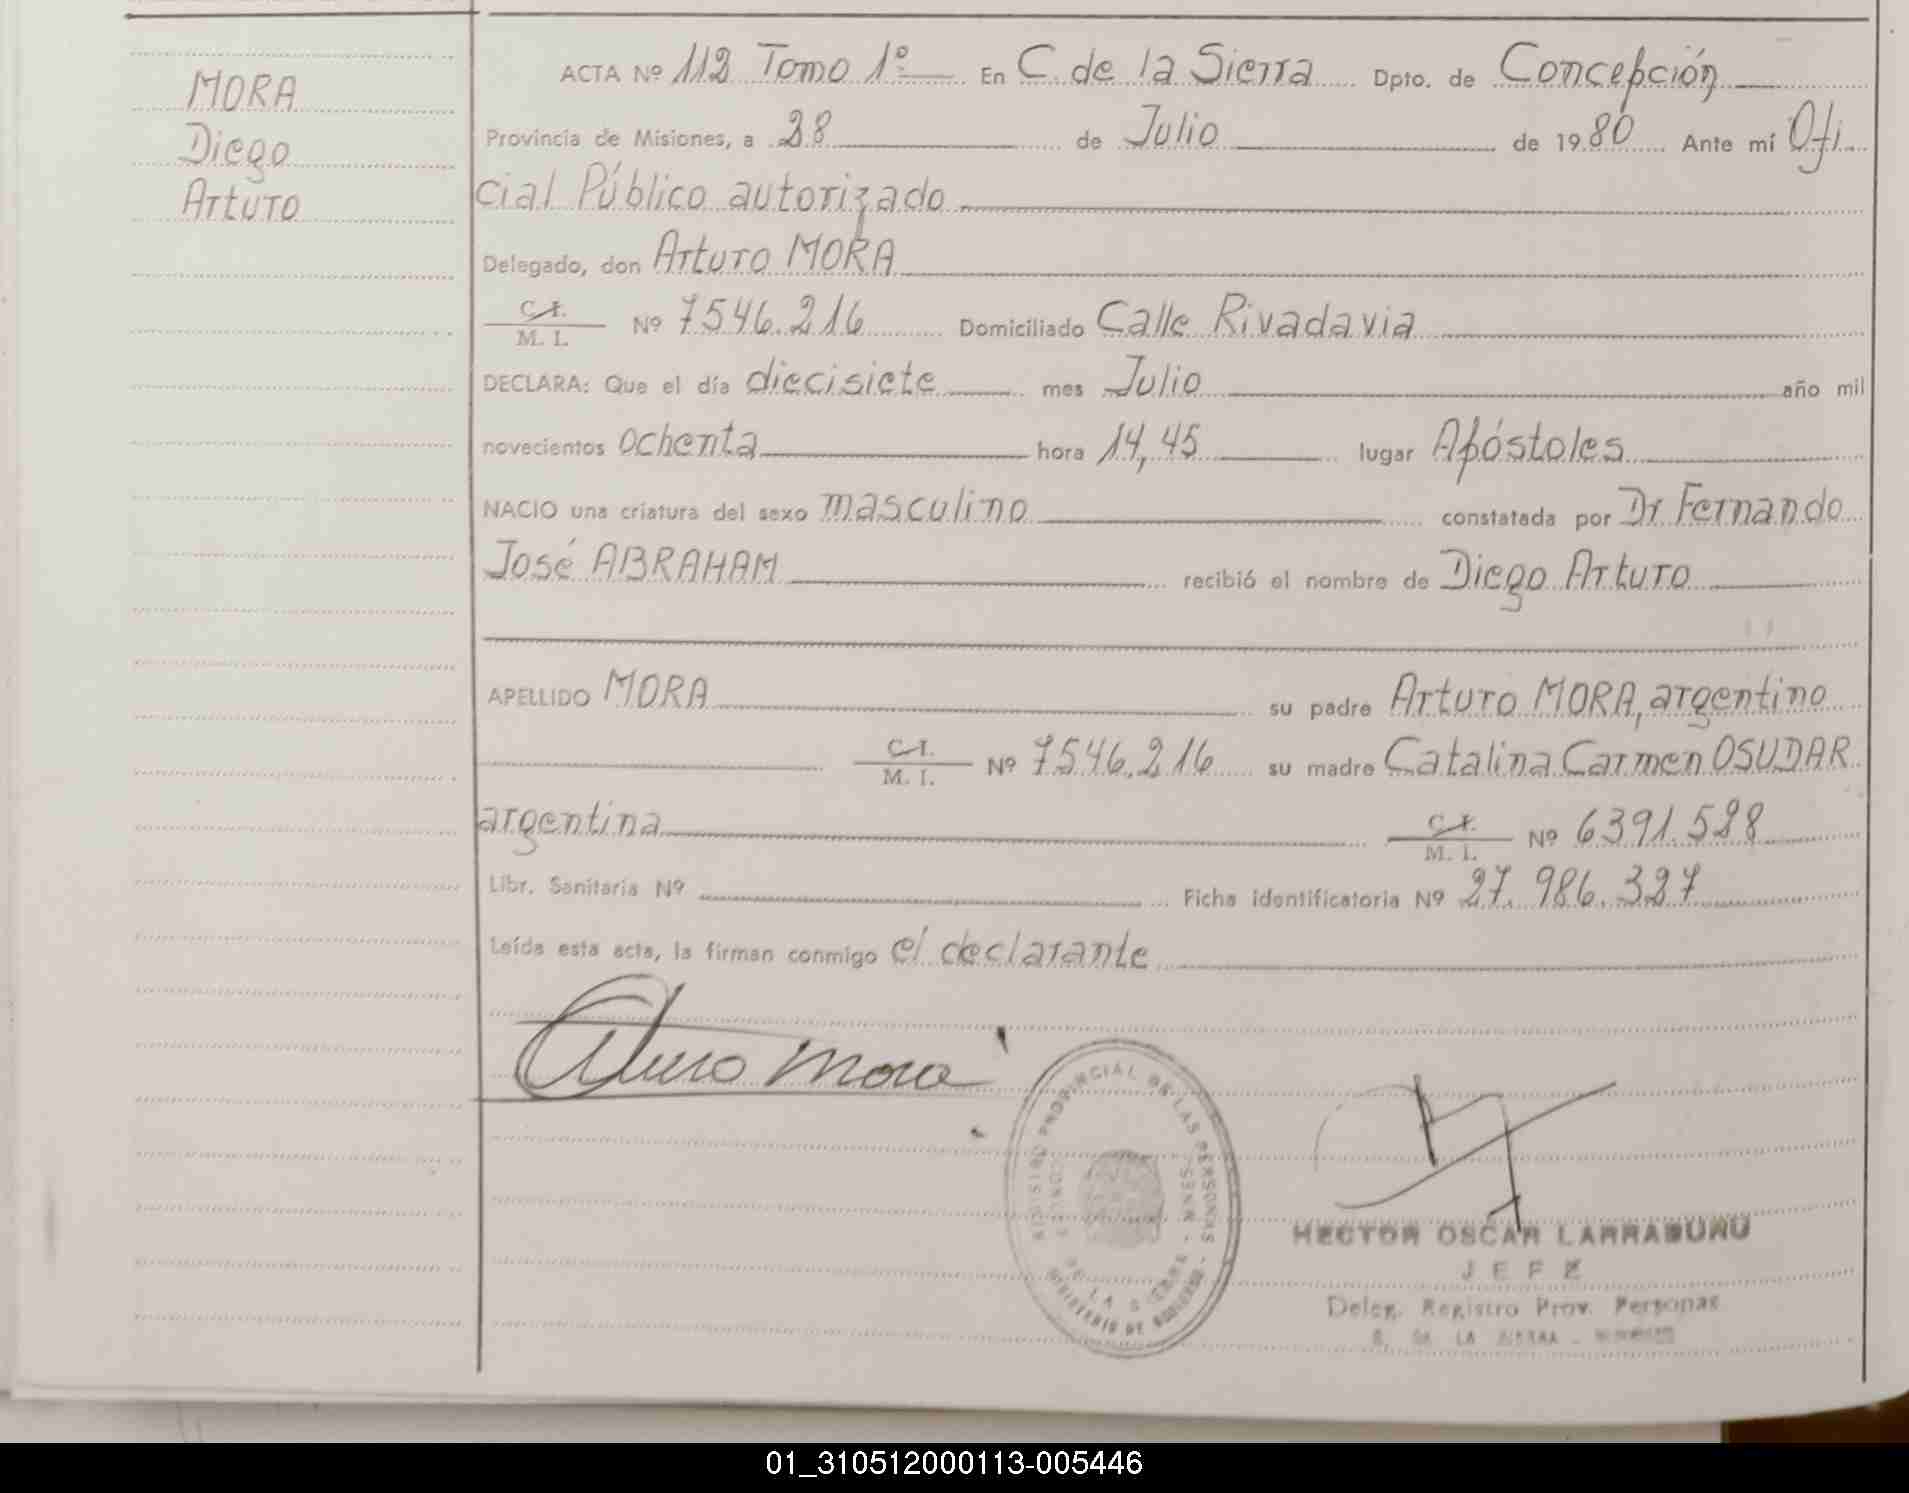 MORA
Diego
Arturo
ACTA Nº 112 Tomo 1º En C. de la Sierra Dpto. de Concepción
Provincia de Misiones, a 28 de Julio de 1980 Ante mí Ofi
cial Público autorizado
Delegado, don Arturo MORA
C.I.
M. I. Nº 7546.216 Domiciliado Calle Rivadavia
DECLARA: Que el día diecisiete mes Julio año mil
novecientos ochenta hora 14,45 lugar Apóstoles
NACIO una criatura del sexo masculino constatada por Dr Fernando
José ABRAHAM recibió el nombre de Diego Arturo
APELLIDO MORA su padre Arturo MORA, argentino
C.I.
M. I. Nº 7546.216 su madre Catalina Carmen OSUDAR
argentina C.I.
M. I. Nº 6391.528
Libr. Sanitaria Nº Ficha identificatoria Nº 27.986.327
Leída esta acta, la firman conmigo el declarante
Arturo Mora
REGISTRO PROVINCIAL DE LAS PERSONAS
MINISTERIO DE GOBIERNO
HECTOR OSCAR LARRABURU
JEFE
Deleg. Registro Prov. Personas
DE LA SIERRA - MISIONES
01_310512000113-005446